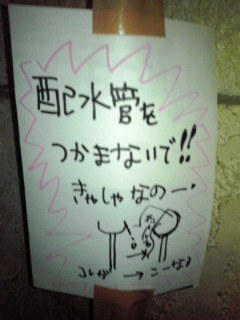 配水管を
つかまないで!!
きゃしゃなのー・
コレが → こーなる